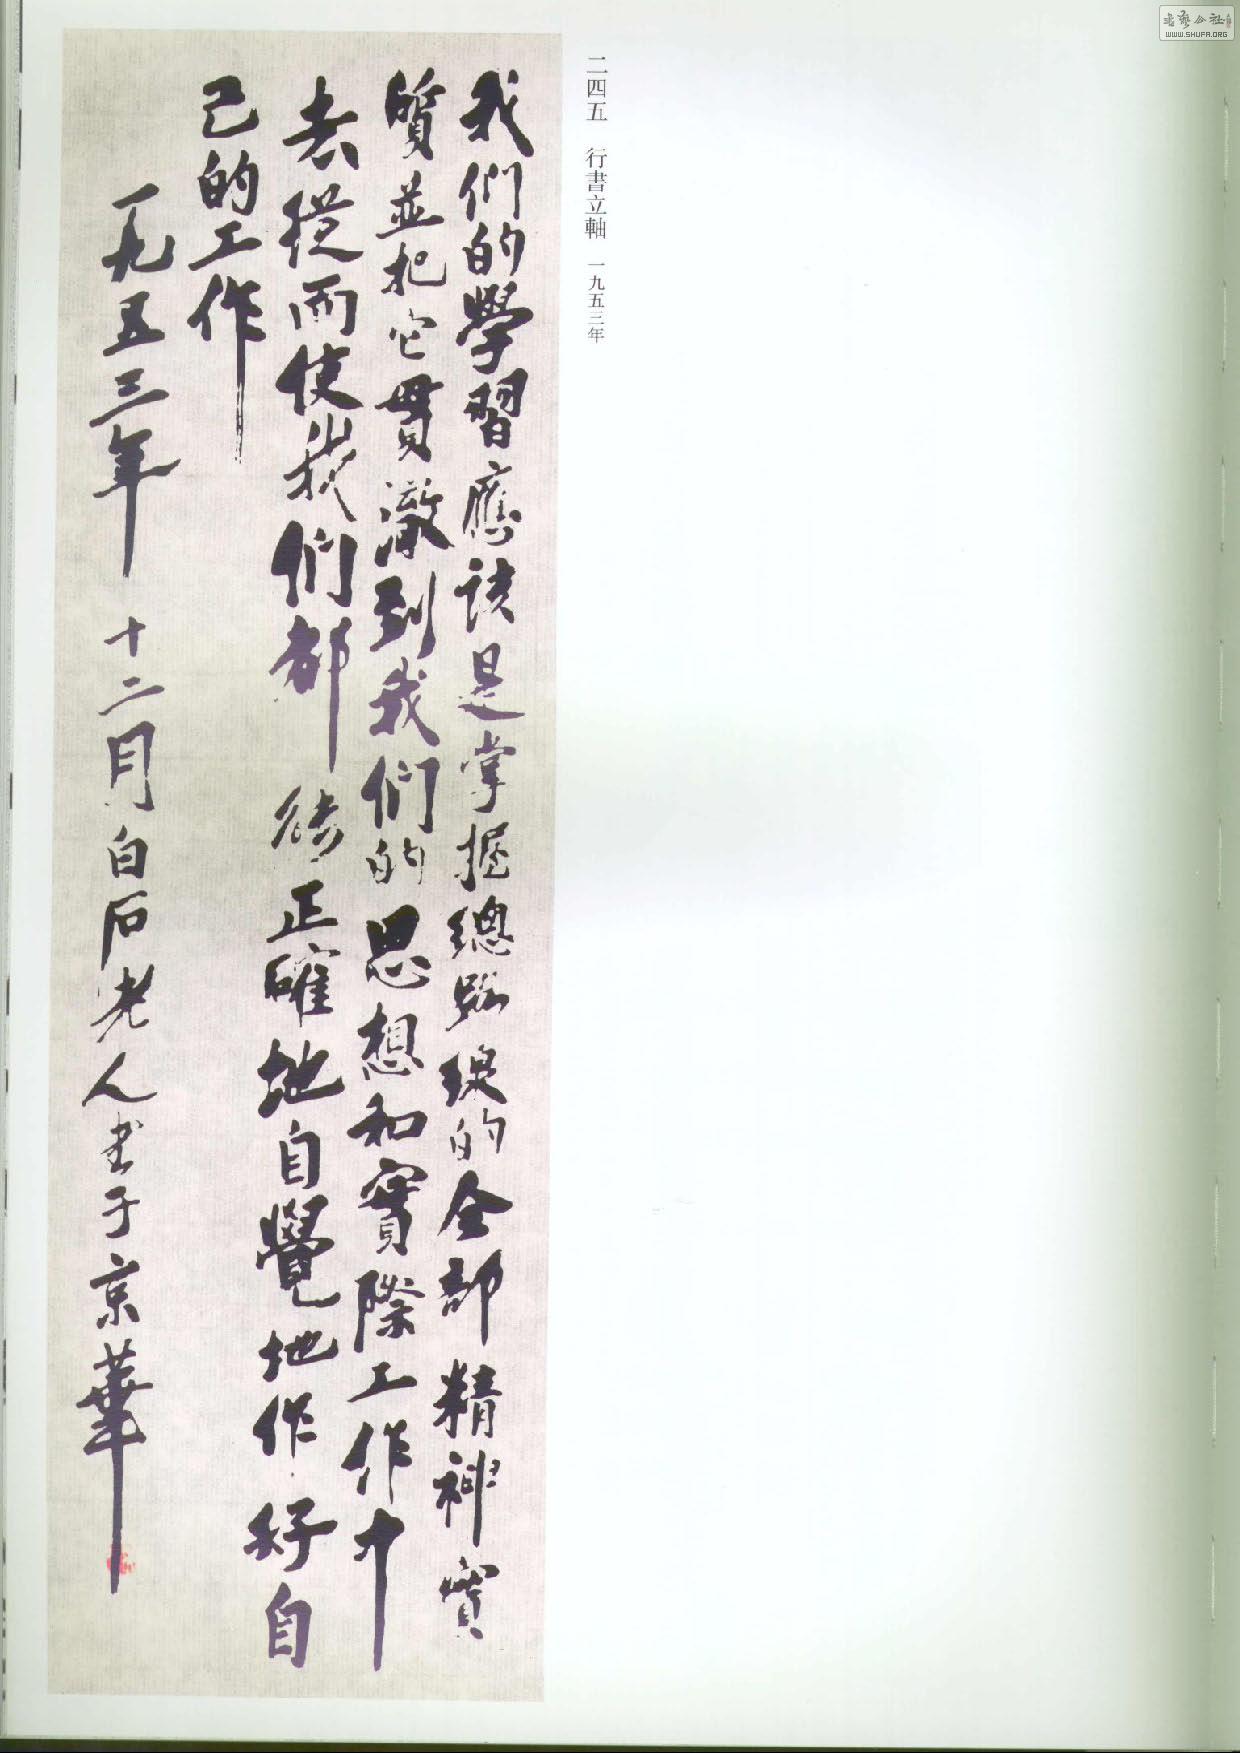 二四五 行書立軸 一九五三年
我們的學習應該是掌握總路線的全部精神實
質並把它貫澈到我們的思想和實際工作中
去從而使我們都能正確地自覺地作好自
己的工作
一九五三年十二月白石老人書于京華
WWW.SHUFA.ORG